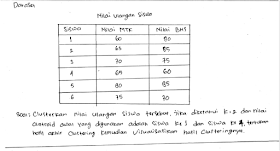 Dataset
Nilai Ulangan Siswa
Siswa Nilai MTK Nilai BHS
1 60 80
2 65 85
3 70 75
4 65 60
5 80 85
6 75 80
Soal : Clusterkan Nilai Ulangan Siswa tersebut, jika diketahui K=2 dan nilai
centroid awal yang digunakan adalah Siswa ke 1 dan Siswa ke 4, tentukan
hasil akhir Clustering kemudian visualisasikan hasil Clusteringnya.